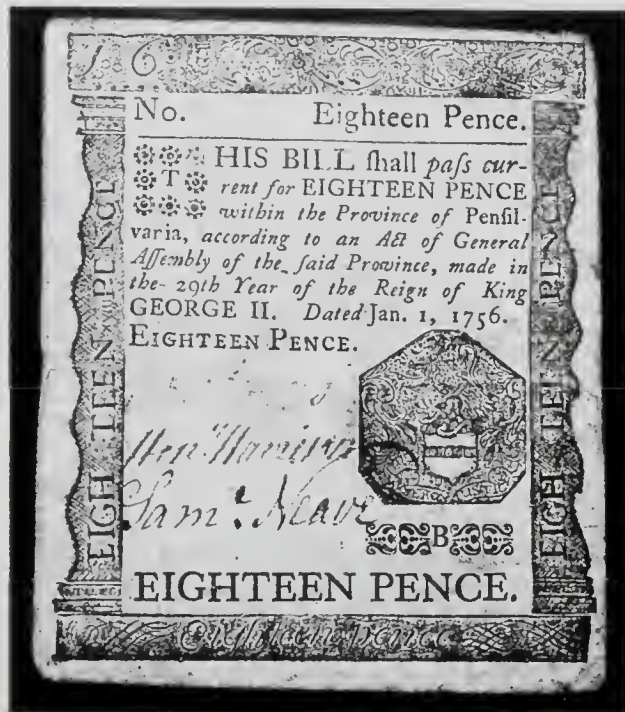 1 6
No. Eighteen Pence.
THIS BILL ſhall paſs cur-
rent for EIGHTEEN PENCE
within the Province of Penſil-
varia, according to an Act of General
Aſſembly of the ſaid Province, made in
the 29th Year of the Reign of King
GEORGE II. Dated Jan. 1, 1756.
EIGHTEEN PENCE.
Saml. Neave
B
EIGHTEEN PENCE.
Eighteen Pence
EIGH TEEN PENCE
EIGH TEEN PENCE